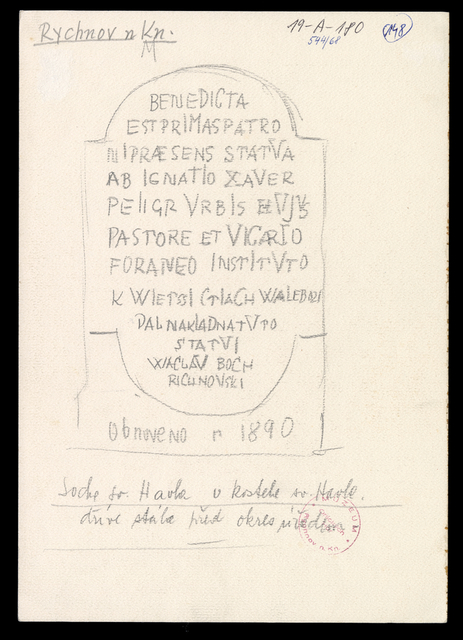 Rychnov n Kn.
19-A-180
544/68
148
BENEDICTA
EST PRIMAS PATRO
NI PRÆSENS STATVA
AB IGNATIO XAVER
PELIGR VRBIS HVJVS
PASTORE ET VICARIO
FORANEO INSTITVTO
K WIETSI CTIACH WALEBNI
DAL NAKLAD NA TVTO
STATVI
WACLAV BOCH
RICHNOVSKI
Obnoveno r 1890
Socha sv. Havla u kostela sv. Havla.
dříve stála před okres. úřadem
MUZEUM
RYCHNOV n. Kn.